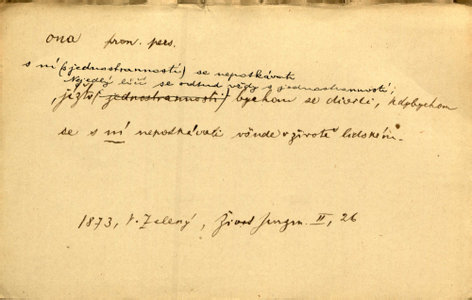 ona pron. pers.
s ní (s jednostranností) se nepotkávati
Nejedlý liší se odtud vždy z jednostrannosti;
jížto (jednostranností) bychom se divili, kdybychom
se s ní nepotkávali všude v životě lidském.
1873, V. Zelený, Život Jungm. II, 26